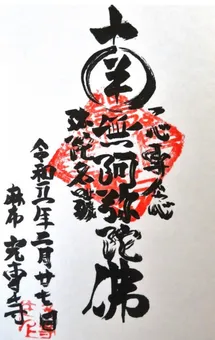 一心専念
南無阿弥陀佛
弥陀名号
令和二年二月廿七日
麻布 光専寺